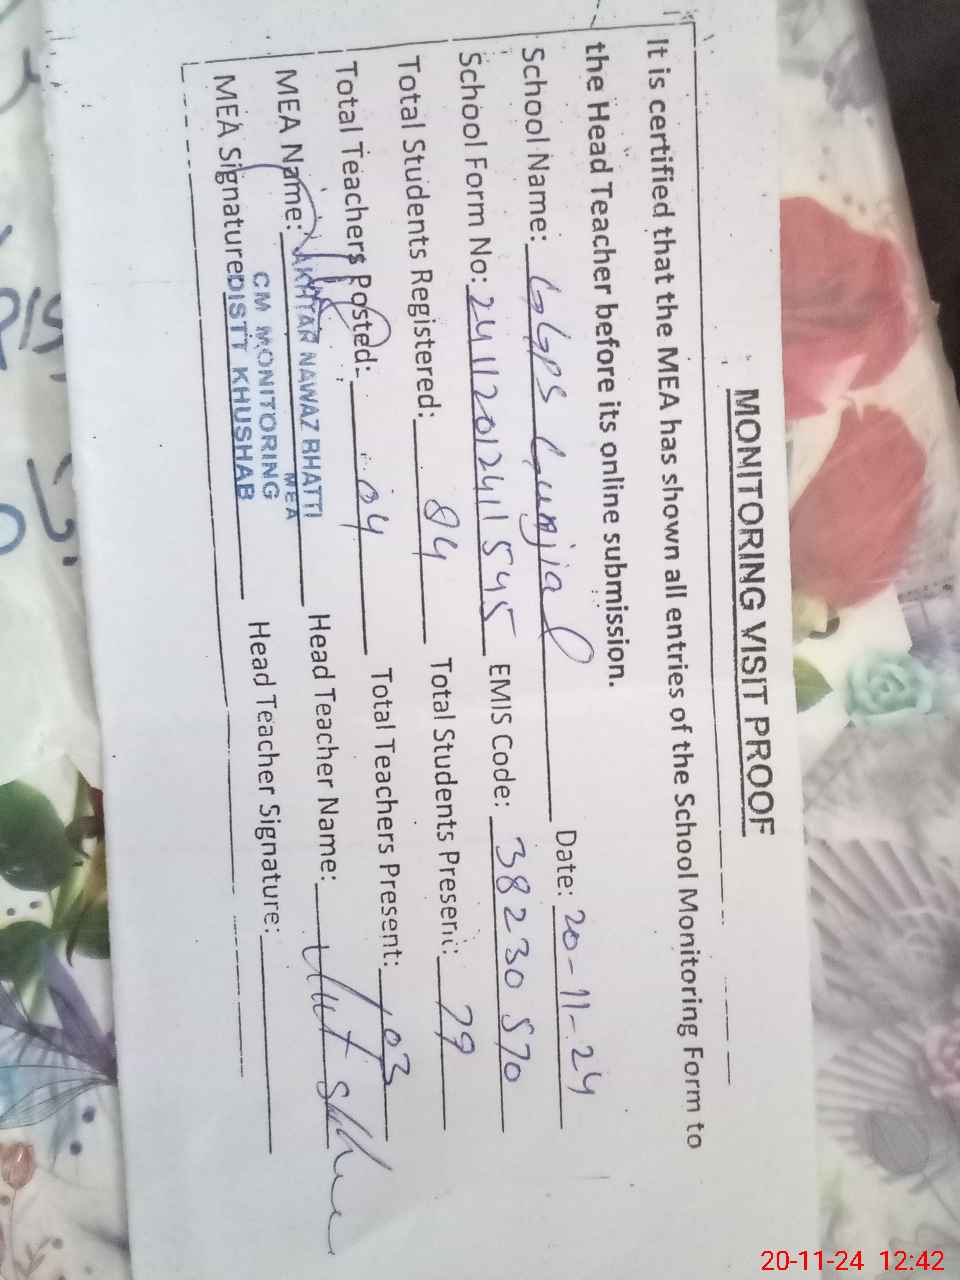 MONITORING VISIT PROOF
It is certified that the MEA has shown all entries of the School Monitoring Form to
the Head Teacher before its online submission.
School Name: GGPS Gunjial Date: 20-11-24
School Form No: 24112012411545 EMIS Code: 38230570
Total Students Registered: 84 Total Students Present: 79
Total Teachers Posted: 04 Total Teachers Present: 03
MEA Name: AKHTAR NAWAZ BHATTI Head Teacher Name:
MEA
CM MONITORING
MEA Signature DISTT KHUSHAB Head Teacher Signature:
20-11-24 12:42